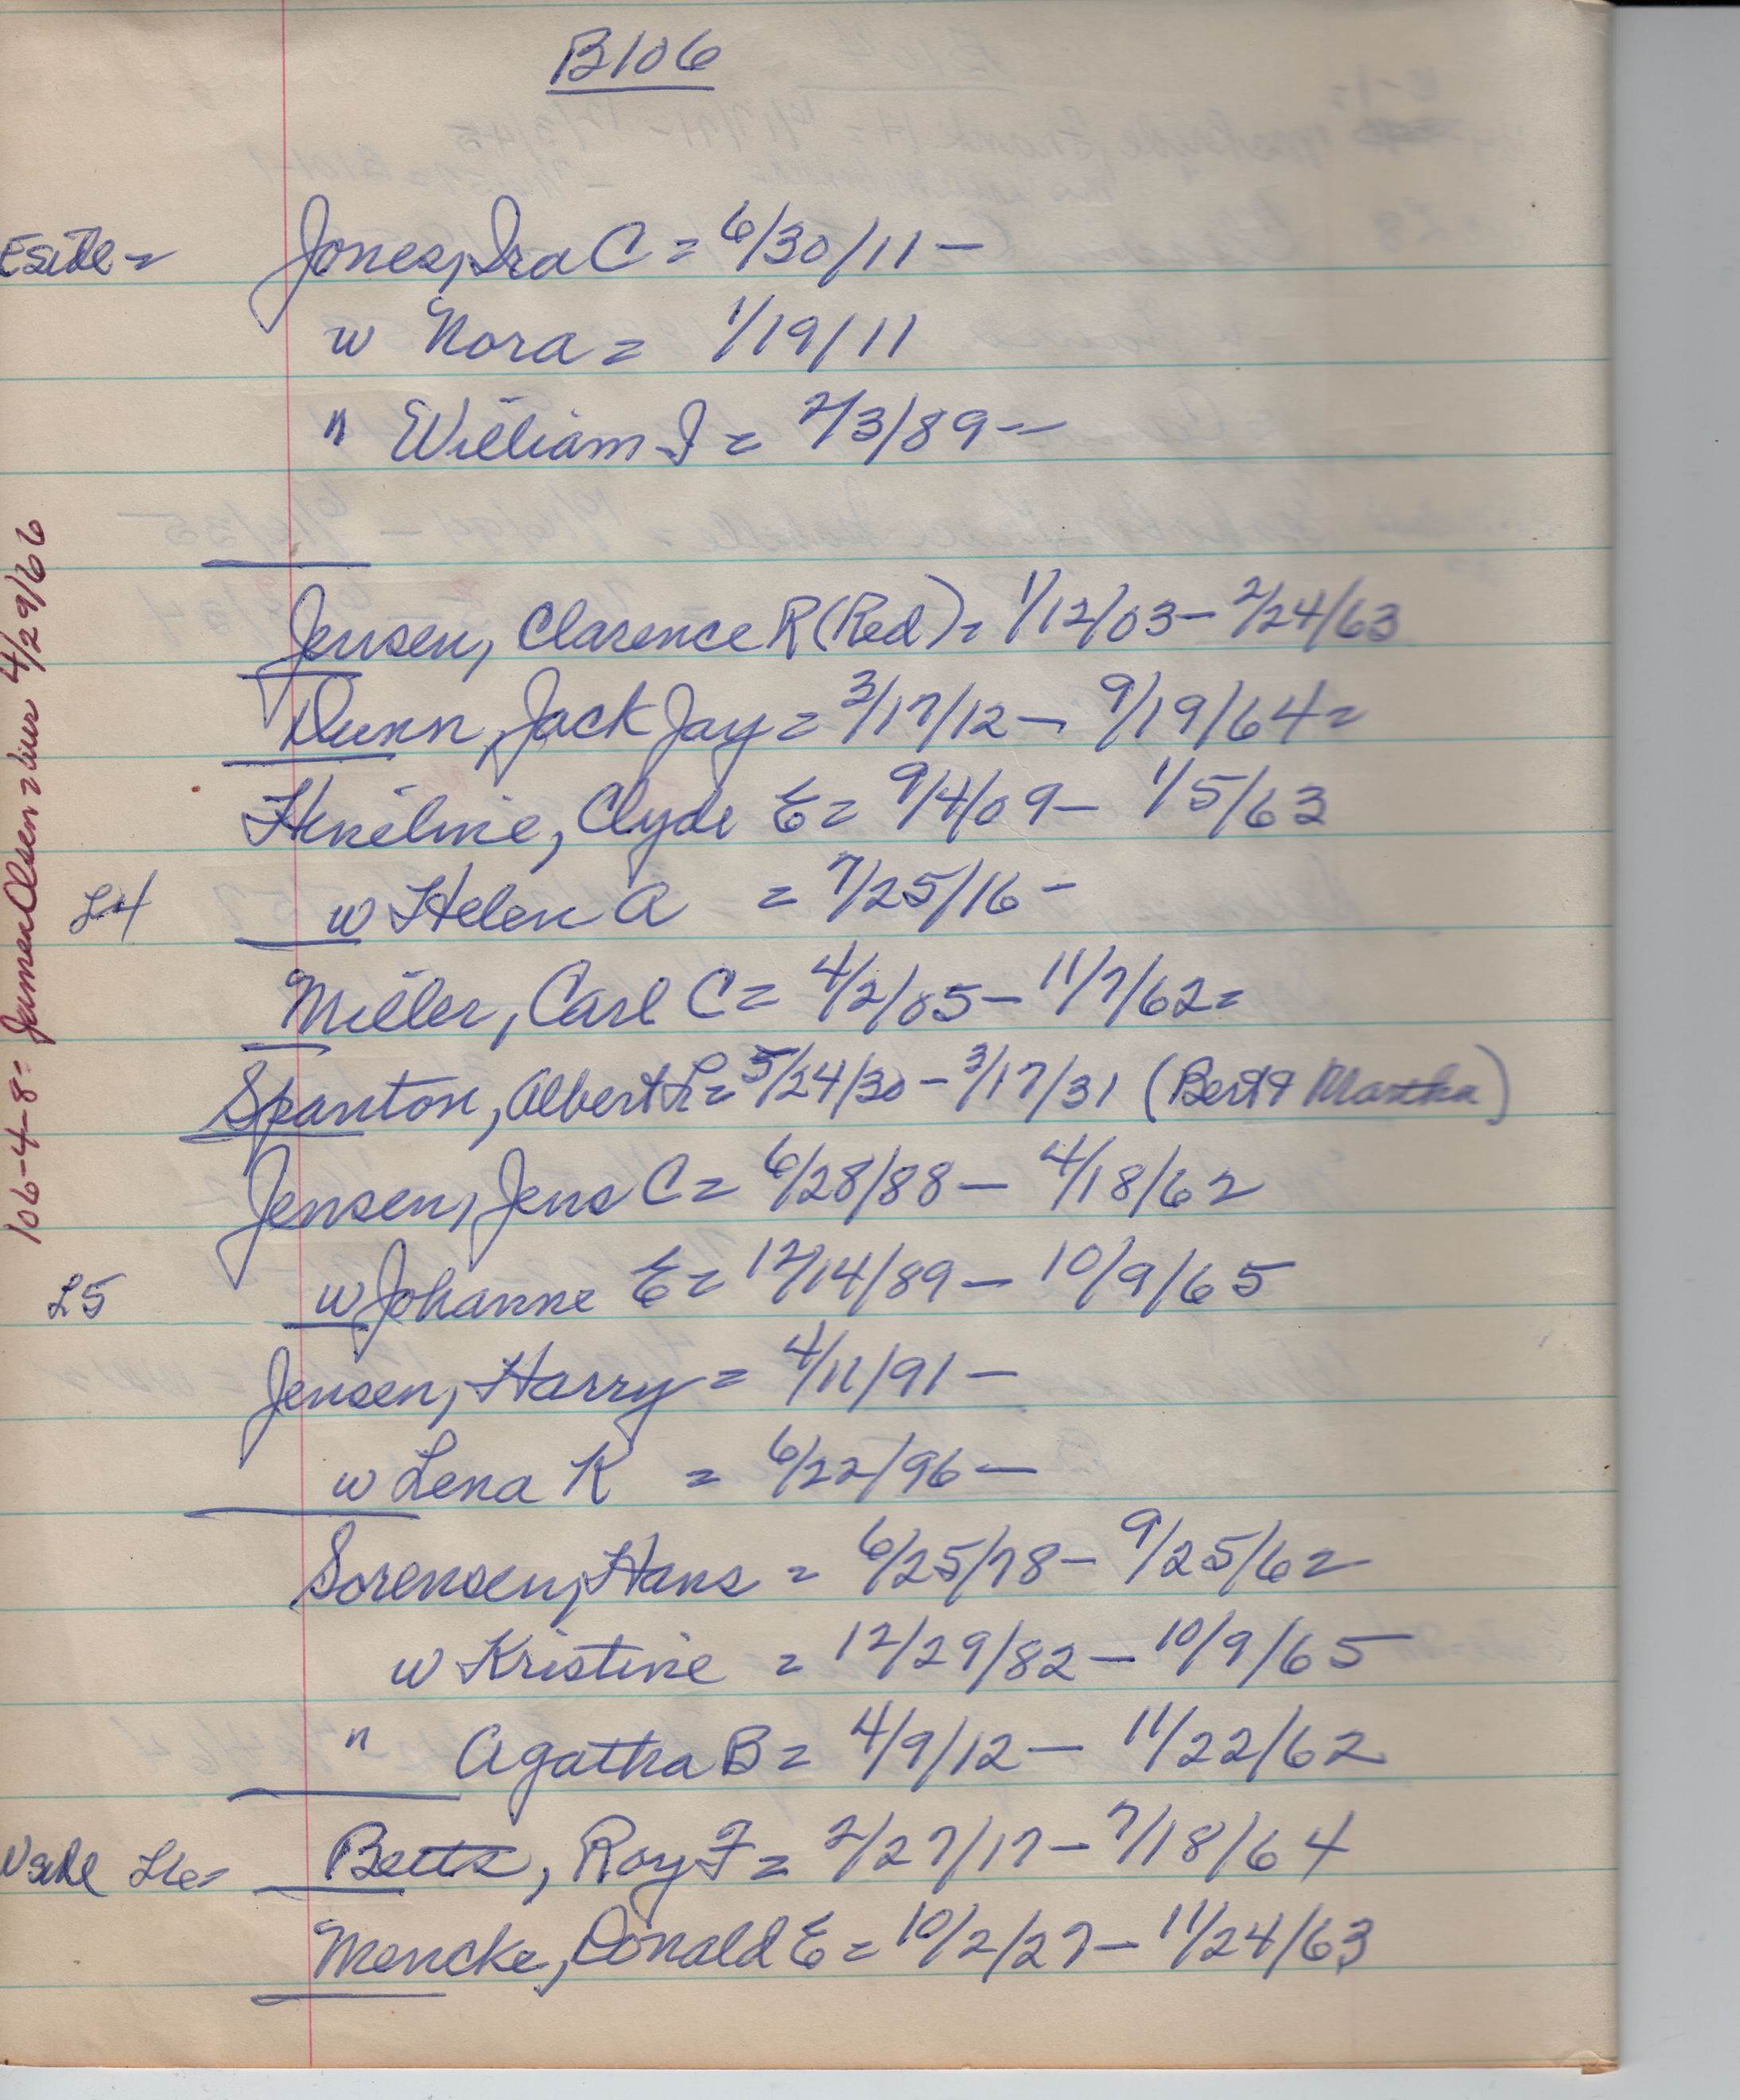 B106
E side = Jones, Ira C = 6/30/11 —
w Nora = 1/19/11
" William I = 2/3/89 —
Jensen, Clarence R (Red) = 1/12/03 — 2/24/63
Dunn, Jack Jay = 3/17/12 — 9/19/64 =
Heneline, Clyde E = 9/4/09 — 1/5/63
L4 w Helen A = 7/25/16 —
Miller, Carl C = 4/2/05 — 11/7/62 =
Spanton, Albert L = 5/24/30 — 3/17/31 (Bert & Martha)
Jensen, Jens C = 6/28/88 — 4/18/62
L5 w Johanne E = 12/14/89 — 10/9/65
Jensen, Harry = 4/11/91 —
w Lena K = 6/22/96 —
Sorensen, Hans = 6/25/78 — 9/25/62
w Kristine = 12/29/82 — 10/9/65
" Agatha B = 4/9/12 — 11/22/62
L6 = Betts, Roy F = 2/27/17 — 7/18/64
Mencke, Donald E = 10/2/27 — 11/24/63
106-4-8 = Olsen 4/29/66